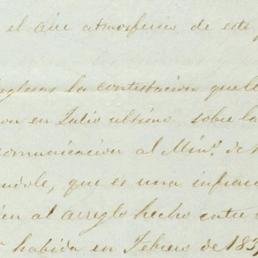 el aire atmosferico de este
la contestacion que
en Julio ultimo sobre la
comunicacion al Min.o de
que es una infrac
al arreglo hecho entre
habida en Febrero de 183